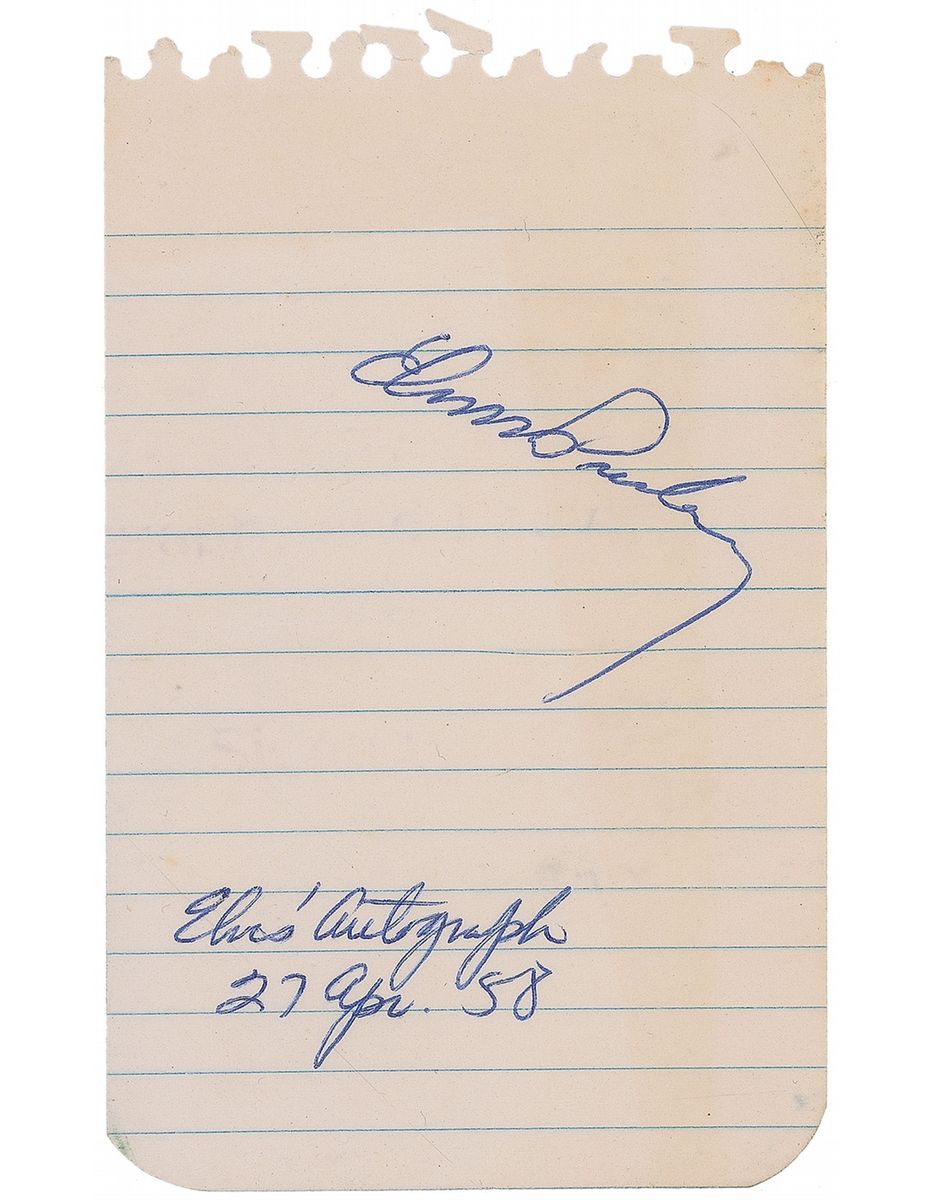 Elvis Presley
Elvis' Autograph
27 Apr. 58